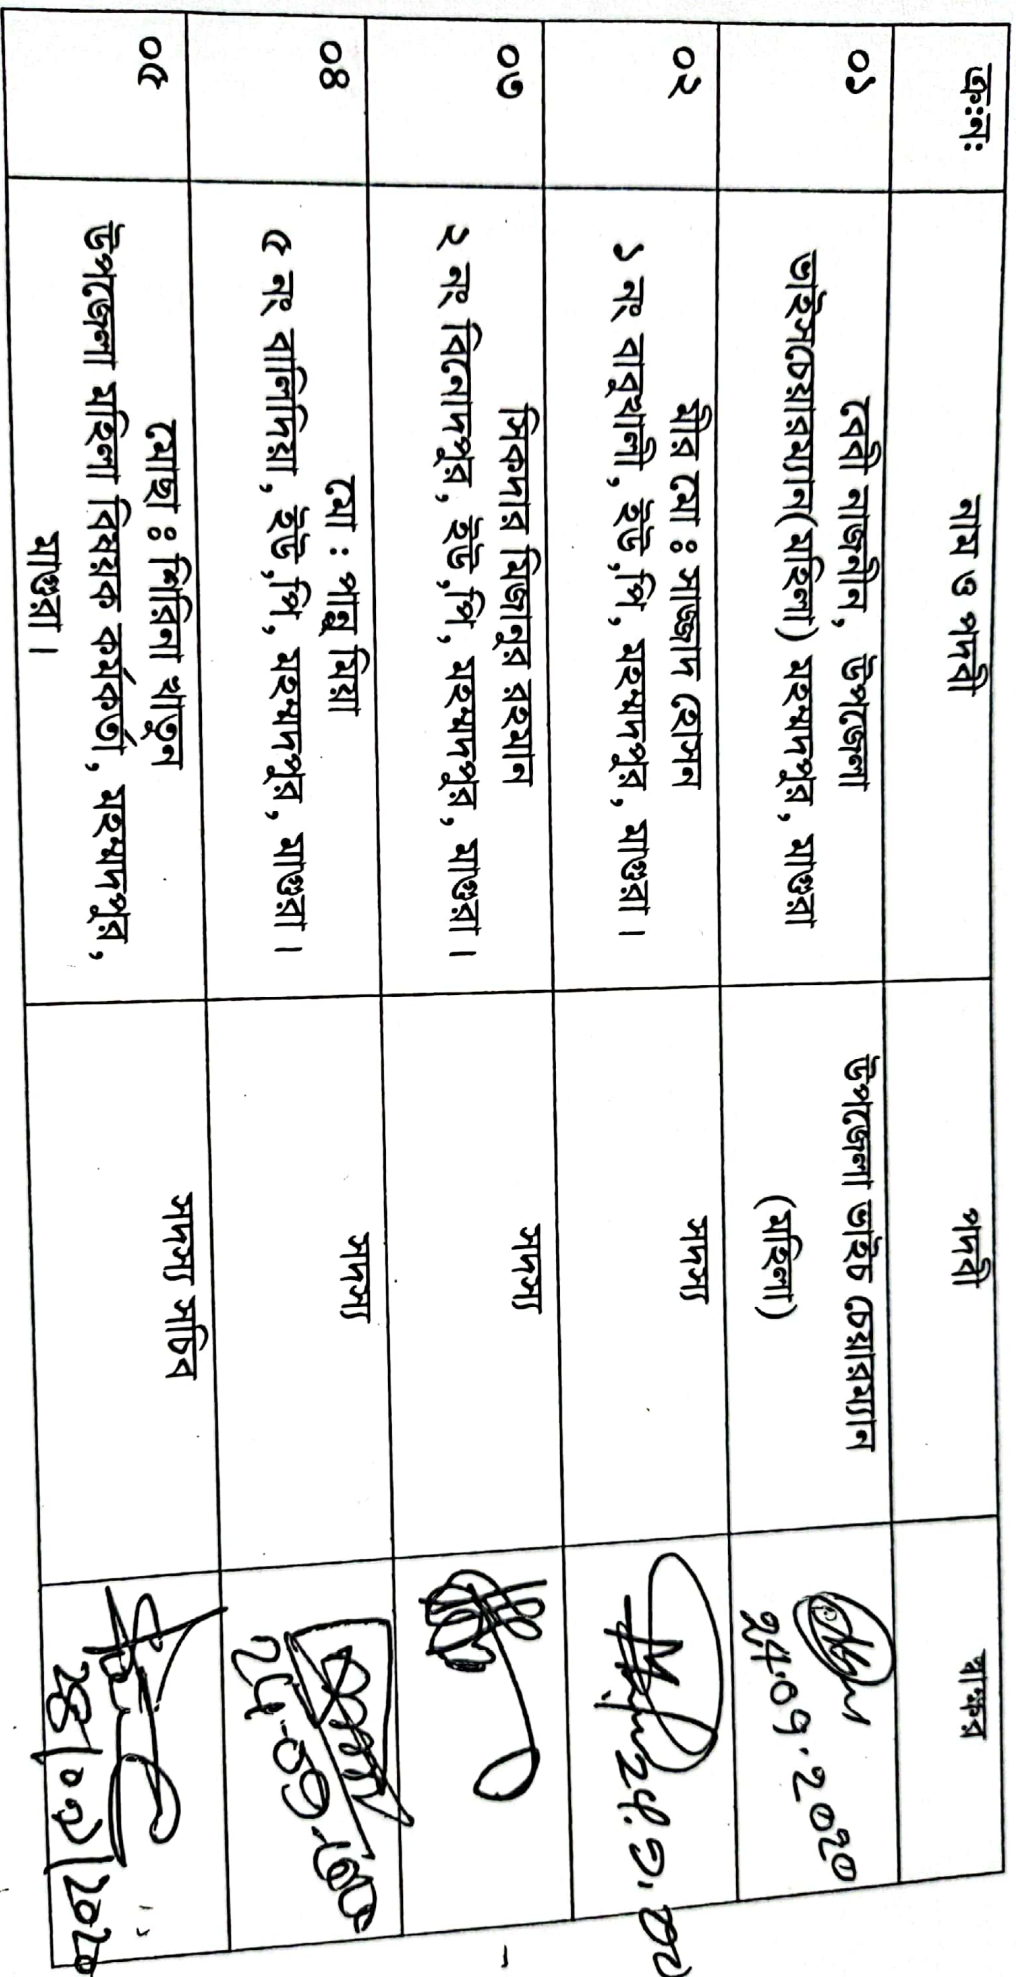 ক্রঃনঃ নাম ও পদবী পদবী স্বাক্ষর
০১ বেবী নাজনীন, উপজেলা
ভাইসচেয়ারম্যান(মহিলা) মহম্মদপুর, মাগুরা
উপজেলা ভাইচ চেয়ারম্যান
(মহিলা)
24.09.2020
০২ মীর মো ঃ সাজ্জাদ হোসন
১ নং বাবুখালী, ইউ,পি, মহম্মদপুর, মাগুরা।
সদস্য
০৩ সিকদার মিজানুর রহমান
২ নং বিনোদপুর, ইউ,পি, মহম্মদপুর, মাগুরা।
সদস্য
০৪ মো : পান্নু মিয়া
৫ নং বালিদিয়া, ইউ,পি, মহম্মদপুর, মাগুরা।
সদস্য
০৫ মোছা ঃ শিরিনা খাতুন
উপজেলা মহিলা বিষয়ক কর্মকর্তা, মহম্মদপুর,
মাগুরা।
সদস্য সচিব